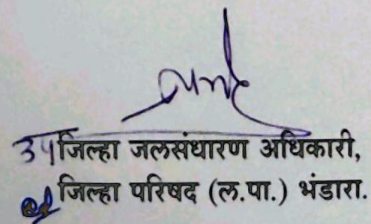 उपजिल्हा जलसंधारण अधिकारी,
जिल्हा परिषद (ल.पा.) भंडारा.